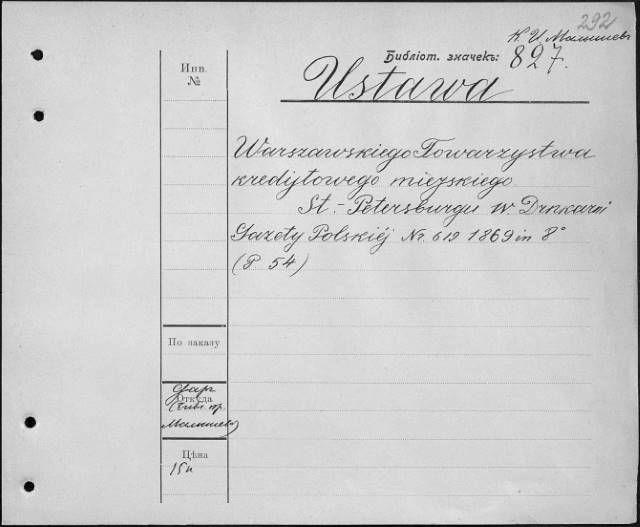 292
К И Малышевъ
Библіот. значекъ: 827.
Инв.
№
Ustawa
Warszawskiego Towarzystwa
kredytowego miejskiego
St.-Petersburgu w. Drukarni
Gazety Polskiéj Nr. 619 1869 in 8°
(P. 54)
По заказу
Откуда
Малышев
Цѣна
15к